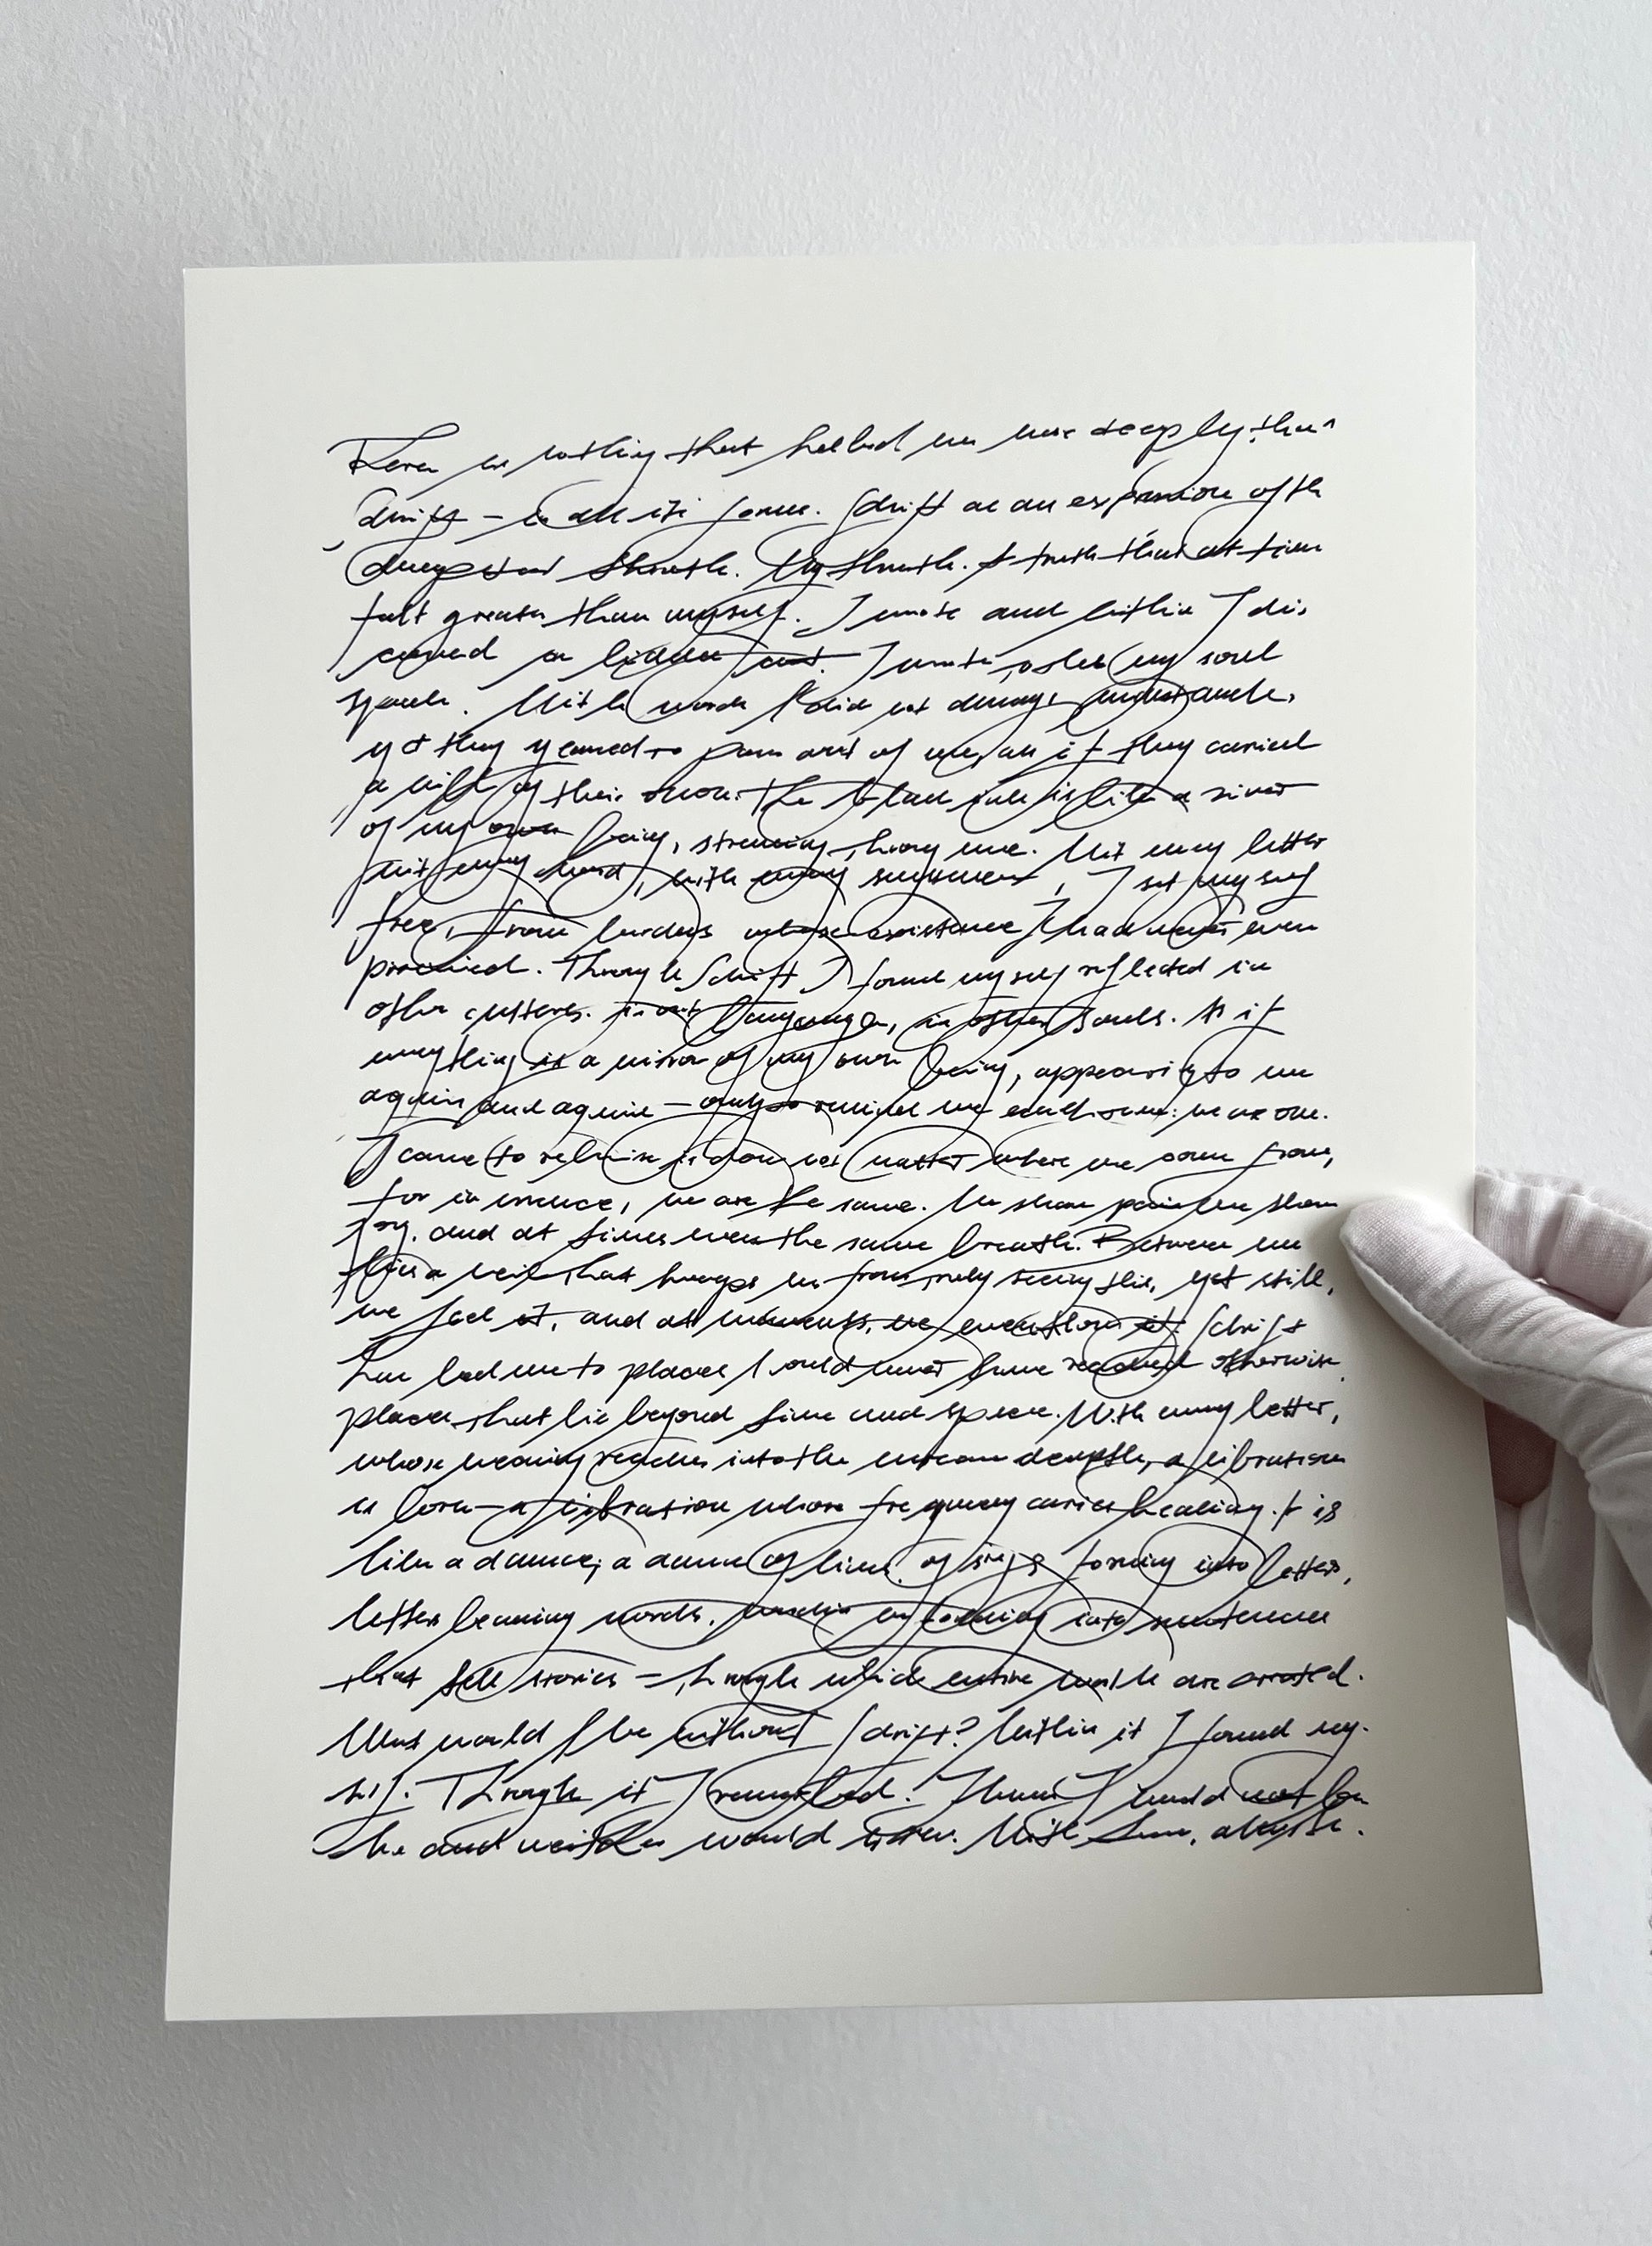 There is nothing that helped me more deeply than
Schrift – in all its forms. Schrift as an expression of the
deepest truth. My truth. A truth that at times
felt greater than myself. I wrote and within I dis
covered a hidden text. I wrote, and my soul
spoke. With words I did not always understand,
yet they yearned to pour out of me, as if they carried
a will of their own. The black ink is like a river
of my own being, streaming through me. With every letter
with every word, with every sentence, I set myself
free, from burdens whose existence I had never even
perceived. Through Schrift I found myself reflected in
other cultures. in other languages, in other souls. As if
everything is a mirror of my own being, appearing to me
again and again – only to remind me each time: we are one.
I came to realise it does not matter where we come from,
for in essence, we are the same. We share pain, we share
joy. and at times even the same breath. Between us
lies a veil that keeps us from truly seeing this, yet still,
we feel it, and at moments, we even know it. Schrift
has led me to places I could never have reached otherwise
places that lie beyond time and space. With every letter,
whose meaning reaches into the unseen depths, a vibration
is born – a vibration whose frequency carries healing. It is
like a dance; a dance of lines. of signs forming into letters,
letters becoming words. words evolving into sentences
that tell stories – through which entire worlds are created.
What would I be without Schrift? Within it I found my-
self. Through it I
he and would With